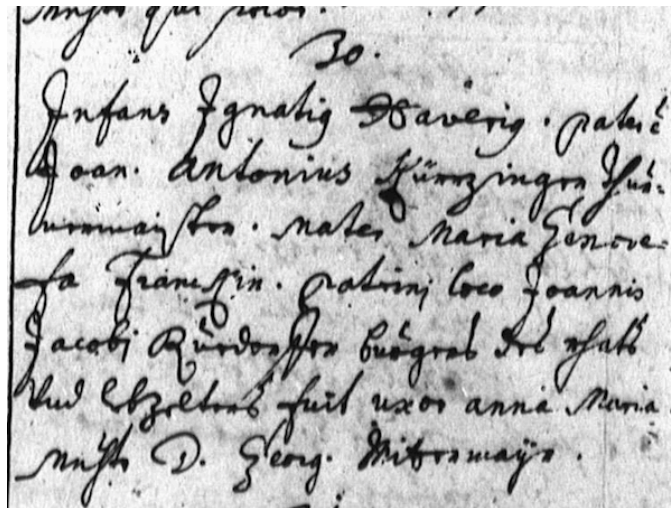 30.
Infans Ignatig Xaverig. pater ē
Joan. Antonius Kürzinger Thür-
nermaister. Mater Maria Genove-
fa Franckin. patrinj loco Joannis
Jacobi burgers des rhats
Vnd lebzelters fuit uxor anna Maria
D. Georg. Mitermayr.